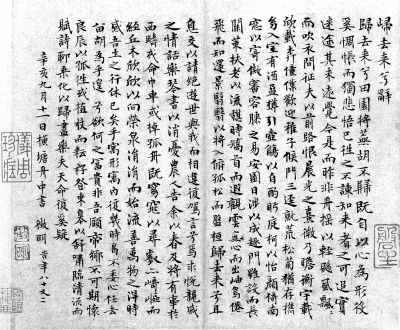 歸去来兮辭
歸去来兮田園将蕪胡不歸既自以心為形役
奚惆悵而獨悲悟已往之不諫知来者之可追寔
迷途其未遠覺今是而昨非舟摇摇以輕颺風飄飄
而吹衣問征夫以前路恨晨光之熹微乃瞻衡宇載
欣載奔僮僕歡迎稚子候門三逕就荒松菊猶存携
幼入室有酒盈樽引壺觴以自酌眄庭柯以怡顔倚南
窓以寄傲審容膝之易安園日涉以成趣門雖設而長
關策扶老以流憩時矯首而遐觀雲無心而出岫鳥倦
飛而知還景翳翳以将入撫孤松而盤桓歸去来兮且
息交以絶遊世與我而相違復駕言兮焉求悦親戚
之情話樂琴書以消憂農人告余以春及将有事於
西疇或命巾車或棹孤舟既窈窕以尋壑亦崎嶇而
經丘木欣欣以向榮泉涓涓而始流善萬物之得時
感吾生之行休已矣乎寓形宇内復幾時曷不委心任去
留胡為乎遑遑欲何之富貴非吾願帝鄉不可期懷
良辰以孤往或植杖而耘耔登東皋以舒嘯臨清流而
賦詩聊乘化以歸盡樂夫天命復奚疑
辛亥九月十一日横塘舟中書 徵明 時年八十又二